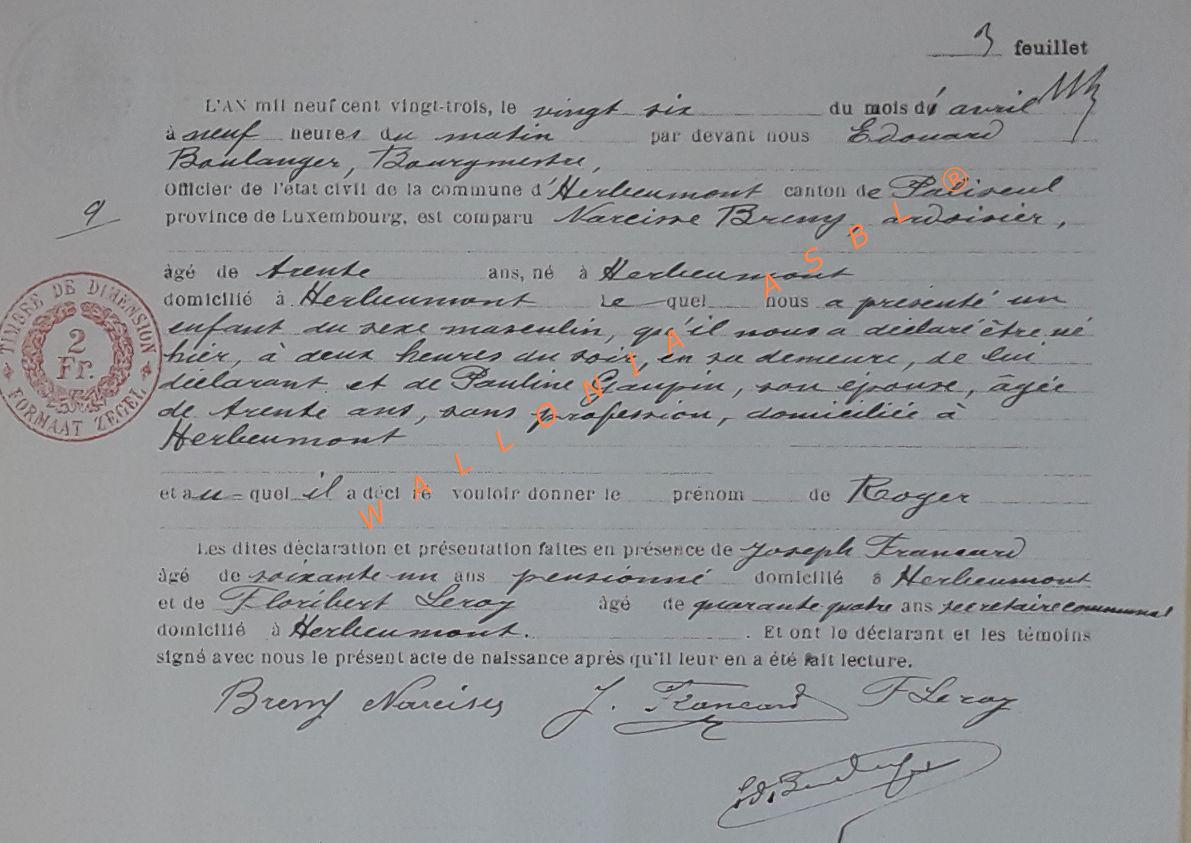 3 feuillet
L'AN mil neuf cent vingt-trois, le vingt six du mois d' avril
à neuf heures du matin par devant nous Edouard
Boulanger, Bourgmestre,
Officier de l'état civil de la commune d'Herbeumont canton de Paliseul
9
province de Luxembourg, est comparu Narcisse Bremy ardoisier,
âgé de trente ans, né à Herbeumont
domicilié à Herbeumont le quel nous a présenté un
enfant du sexe masculin, qu'il nous a déclaré être né
hier, à deux heures du soir, en sa demeure, de lui
déclarant et de Pauline Gaupin, son épouse, âgée
de trente ans, sans profession, domiciliée à
Herbeumont
et au-quel il a décl ré vouloir donner le prénom de Roger
Les dites déclaration et présentation faites en présence de Joseph Francard
âgé de soixante-un ans pensionné domicilié à Herbeumont
et de Floribert Leroy âgé de quarante quatre ans secrétaire communal
domicilié à Herbeumont. . Et ont le déclarant et les témoins
signé avec nous le présent acte de naissance après qu'il leur en a été fait lecture.
Bremy Narcisse J. Francard F Leroy
Ed. Boulanger
TIMBRE DE DIMENSION
2
Fr.
FORMAAT ZEGEL
WALLONIA ASBL ®